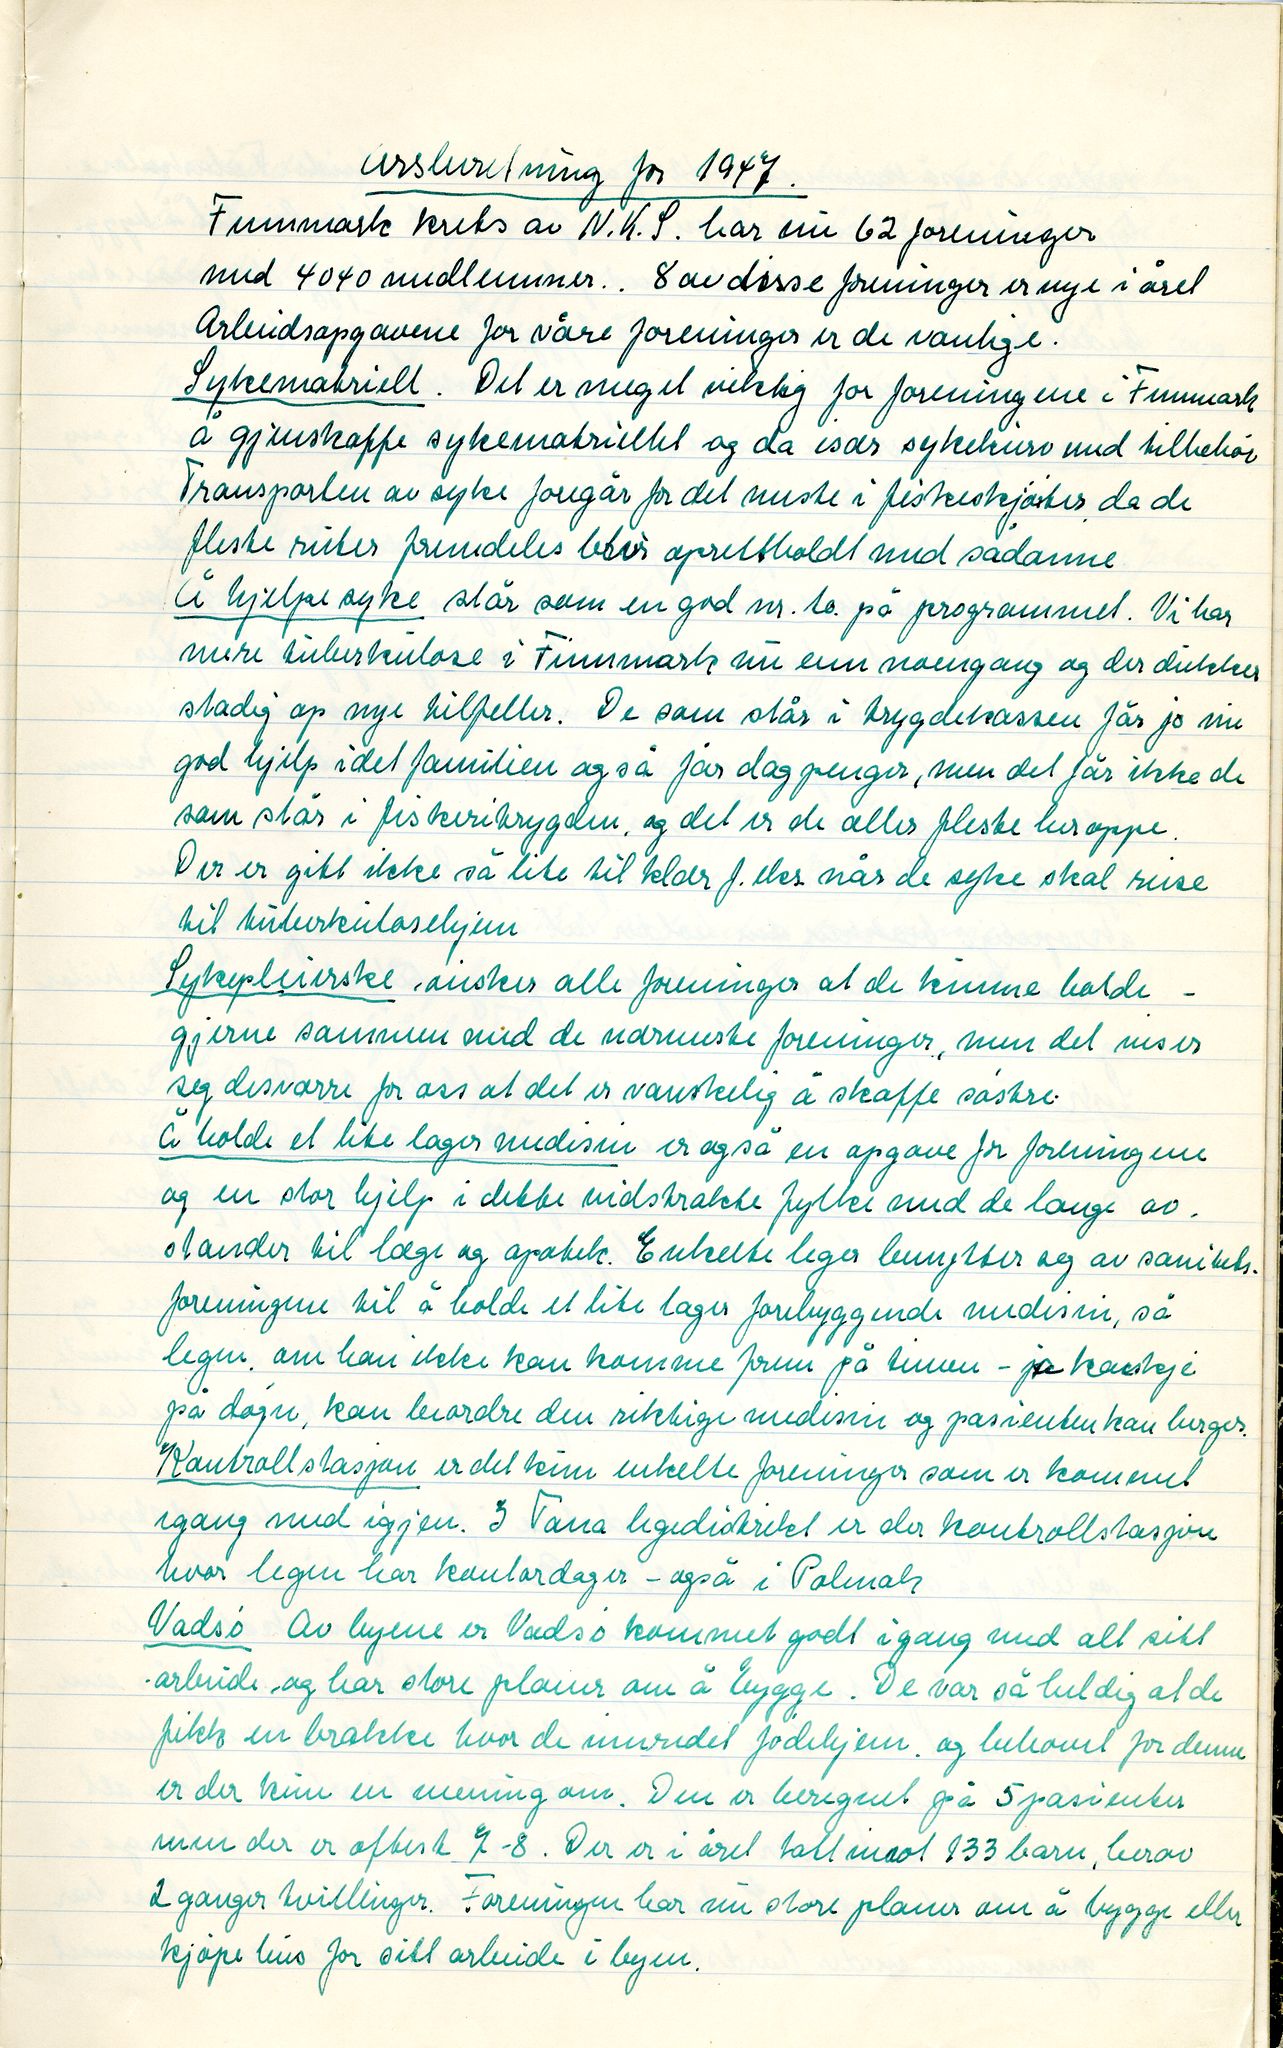 Årsberetning for 1947.
Finnmark krets av N.K.S. har nu 62 foreninger
med 4040 medlemmer.. 8 av disse foreninger er nye i året
Arbeidsopgavene for våre foreninger er de vanlige.
Sykematriell. Det er meget viktig for foreningene i Finnmark
å gjenskaffe sykematriellet og da især sykekurv med tilbehör
Transporten av syke foregår for det meste i fiskeskjöiter da de
fleste ruter fremdeles blir oprettholdt med sådanne
Å hjelpe syke står som en god nr. to. på programmet. Vi har
mere tuberkulose i Finnmark nu enn noengang og der dukker
stadig op nye tilfeller. De som står i trygdekassen får jo nu
god hjelp idet familien også får dagpenger, men det får ikke de
som står i fiskeritrygden, og det er de aller fleste heroppe.
Der er gitt ikke så lite til klær f. eks. når de syke skal reise
til tuberkulosehjem
Sykepleierske önsker alle foreninger at de kunne holde -
gjerne sammen med de nærmeste foreninger, men det viser
seg desværre for oss at det er vanskelig å skaffe söstre.
Å holde et lite lager medisin er også en opgave for foreningene
og en stor hjelp i dette vidstrakte fylke med de lange av-
stander til læge og apotek. Enkelte leger benytter seg av sanitets-
foreningene til å holde et lite lager forebyggende medisin, så
legen, om han ikke kan komme frem på timen - ja kanskje
på dögn, kan beordre den riktige medisin og pasienten kan berges.
Kontrollstasjon er det kun enkelte foreninger som er kommet
igang med igjen. I Tana legedistrikt er der kontrollstasjon
hvor legen har kontordager - også i Polmak
Vadsö Av byene er Vadsö kommet godt igang med alt sitt
arbeide, og har store planer om å bygge. De var så heldig at de
fikk en brakke hvor de innredet födehjem, og behovet for denne
er der kun en mening om. Den er beregnet på 5 pasienter
men der er oftest 7-8. Der er i året tatt imot 133 barn, herav
2 ganger tvillinger. Foreningen har nu store planer om å bygge eller
kjöpe hus for sitt arbeide i byen.